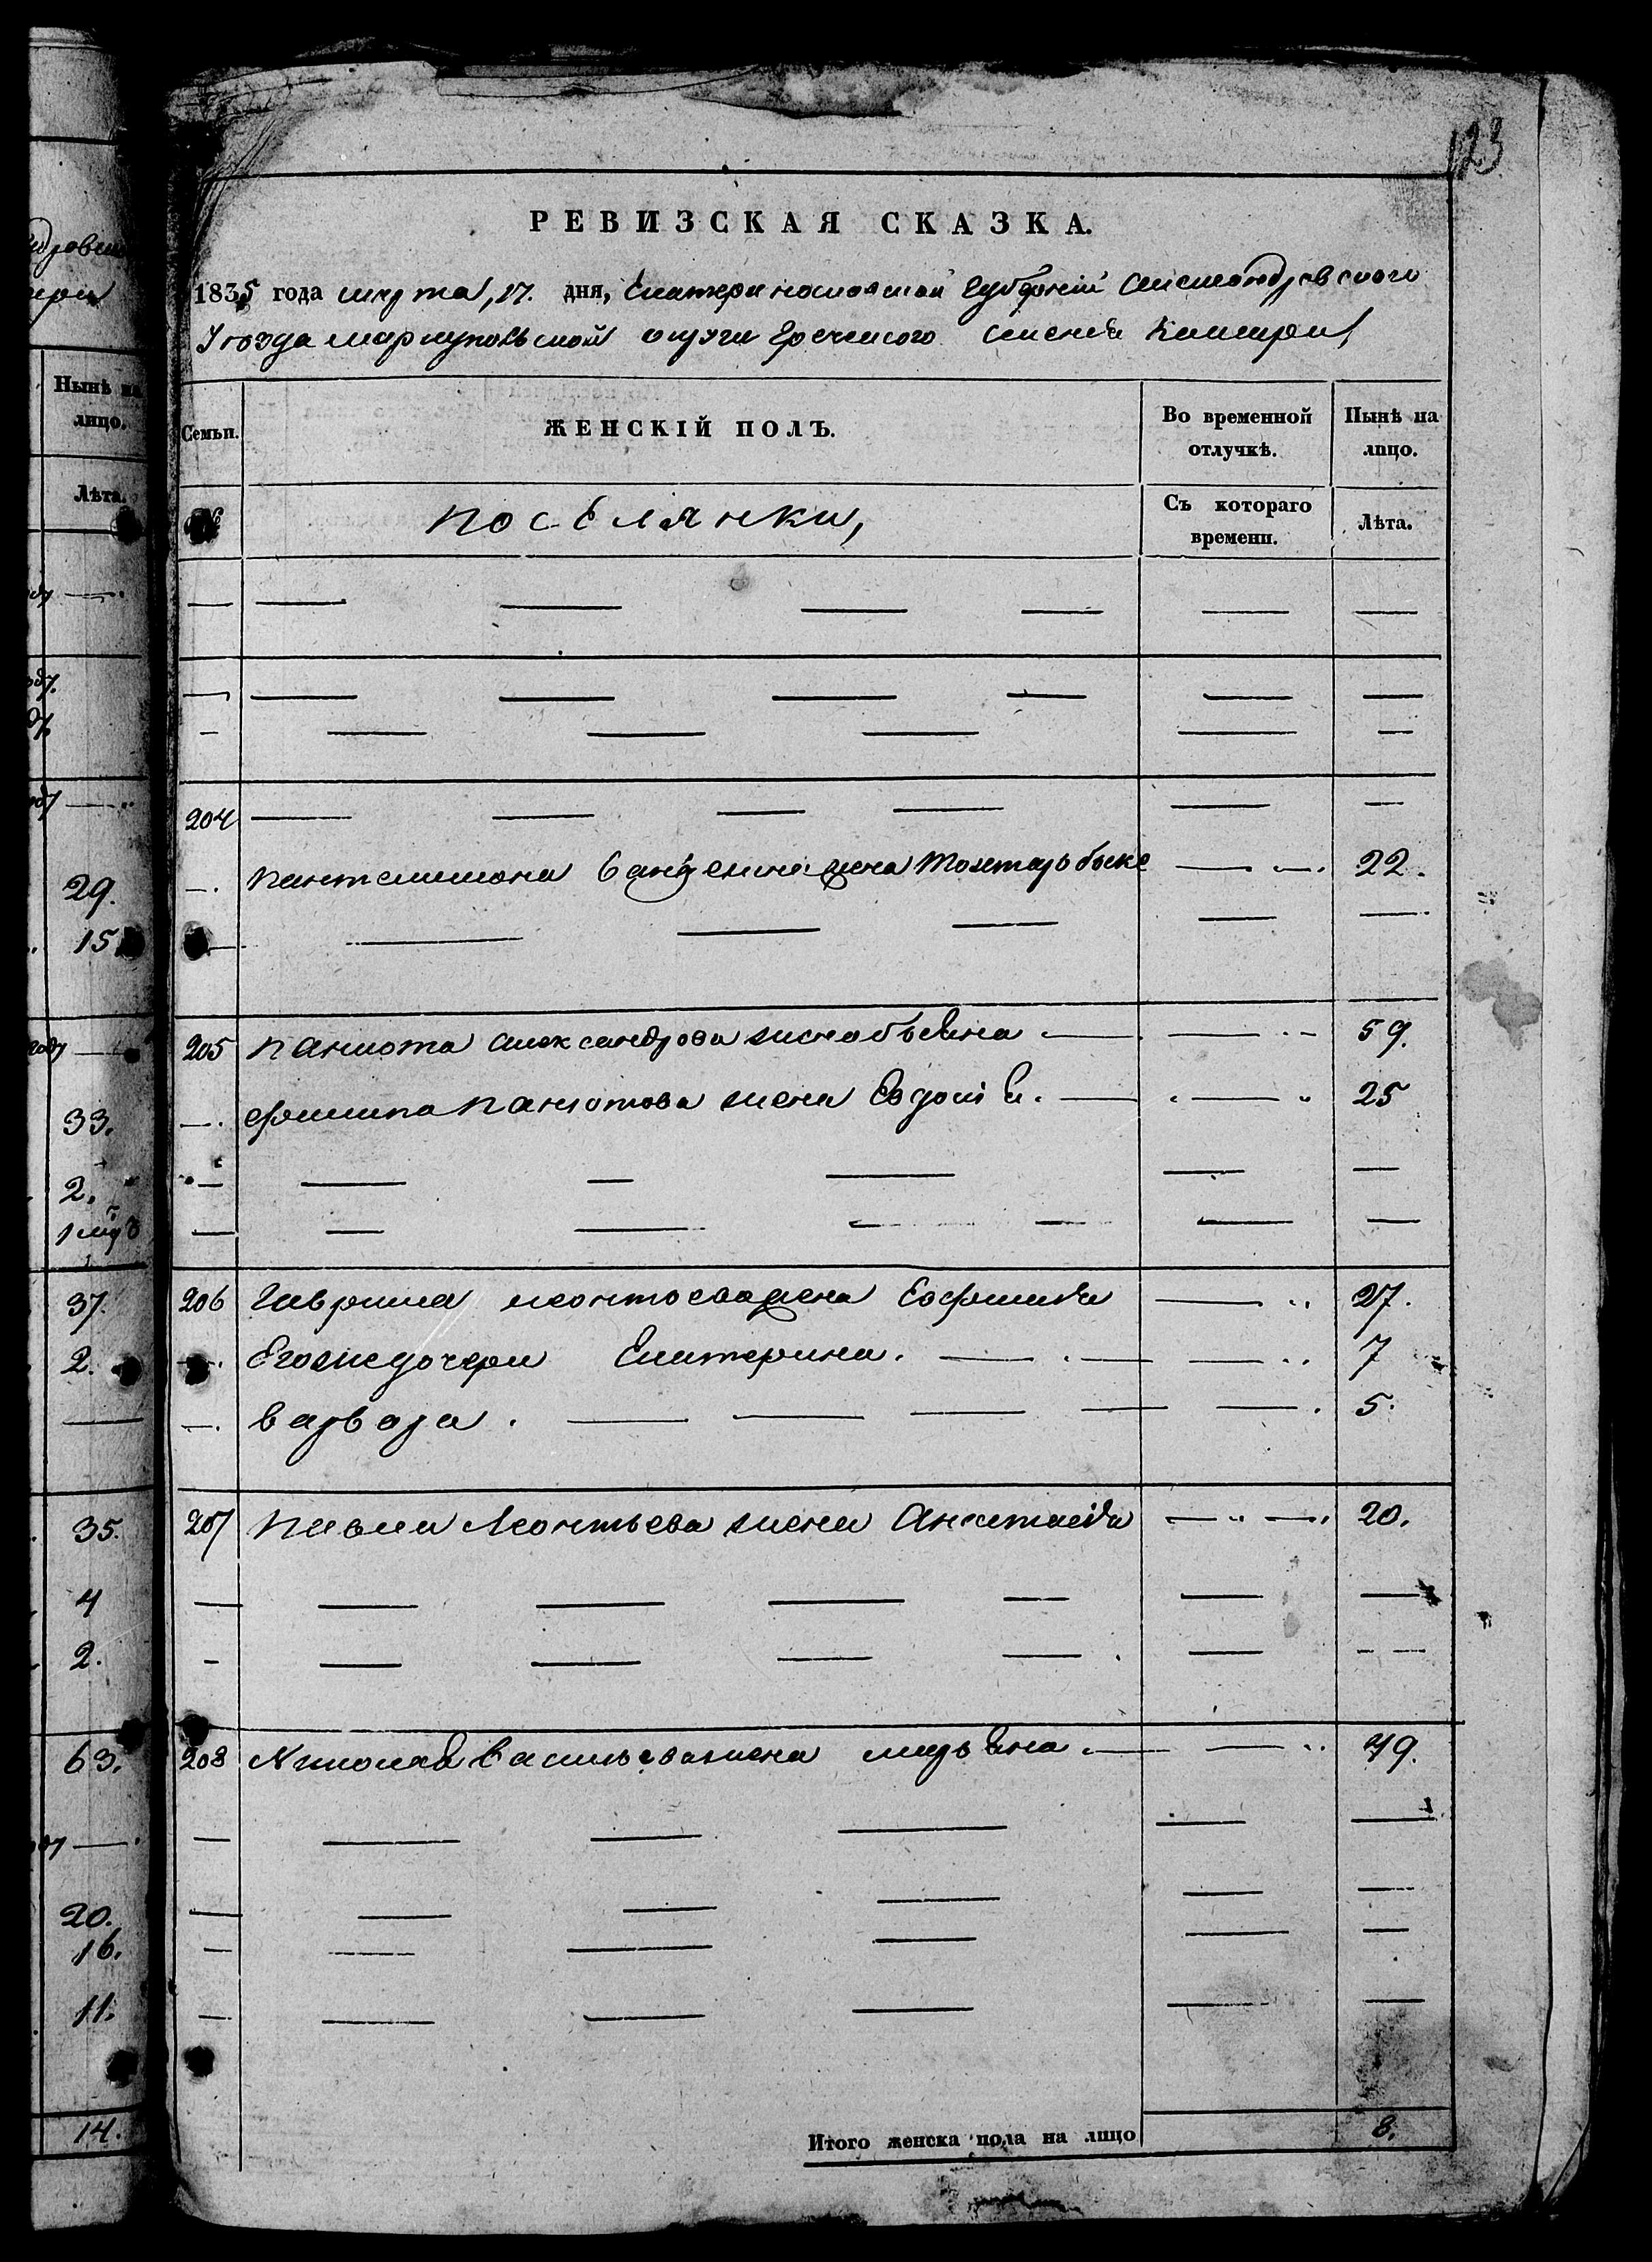 123
РЕВИЗСКАЯ СКАЗКА.
1835 года марта, 17. дня, Екатеринославской Губерній Александровского
Уезда мариупольской округи греческого селенія
Семьи. ЖЕНСКІЙ ПОЛЪ. Во временной отлучкѣ. Нынѣ на лицо.
№ поселянки, Съ котораго времени. Лѣта.
204
Пантелимона жена 22.
205 Панюота александрова жена 59.
филипа Панютова жена Евдокія. 25
206 Гаврила леонтоева жена Софишія 27.
Егоже дочери Екатерина. 7
варвара. 5.
207 Павла Леонтьева жена Анастасія 20.
208 Николая Васильева жена 49.
Итого женска пола на лицо 8.
Нынѣ на лицо.
Лѣта.
29.
15.
33.
2.
37.
2.
35.
4
2.
63.
20.
16.
11.
14.